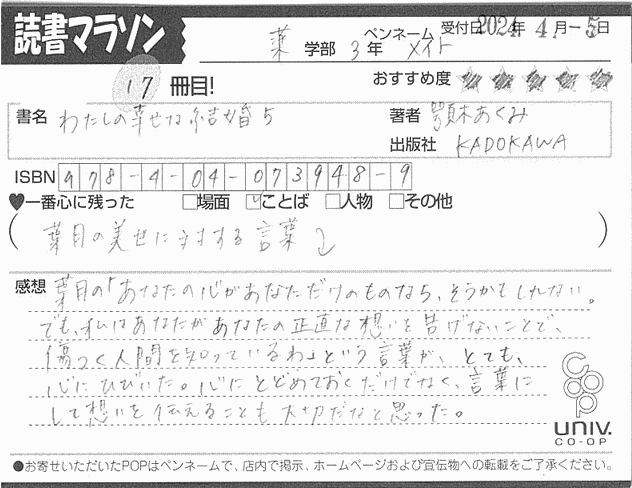 読書マラソン
薬 学部 3年 ペンネーム メイト 受付日 2024年 4月-5日
17 冊目! おすすめ度 ★★★★★
書名 わたしの幸せな結婚5 著者 顎木あくみ
出版社 KADOKAWA
ISBN 978-4-04-073948-9
♥一番心に残った □場面 ☑ことば □人物 □その他
(葉月の美世に対する言葉)
感想 葉月の「あなたの心があなただけのものなら、そうかもしれない。
でも、私はあなたがあなたの正直な想いを告げないことで、
傷つく人間を知っているわ」という言葉が、とても、
心にひびいた。心にとどめておくだけでなく、言葉に
して想いを伝えることも大切だなと思った。
coop
UNIV.
CO-OP
●お寄せいただいたPOPはペンネームで、店内で掲示、ホームページおよび宣伝物への転載をご了承ください。